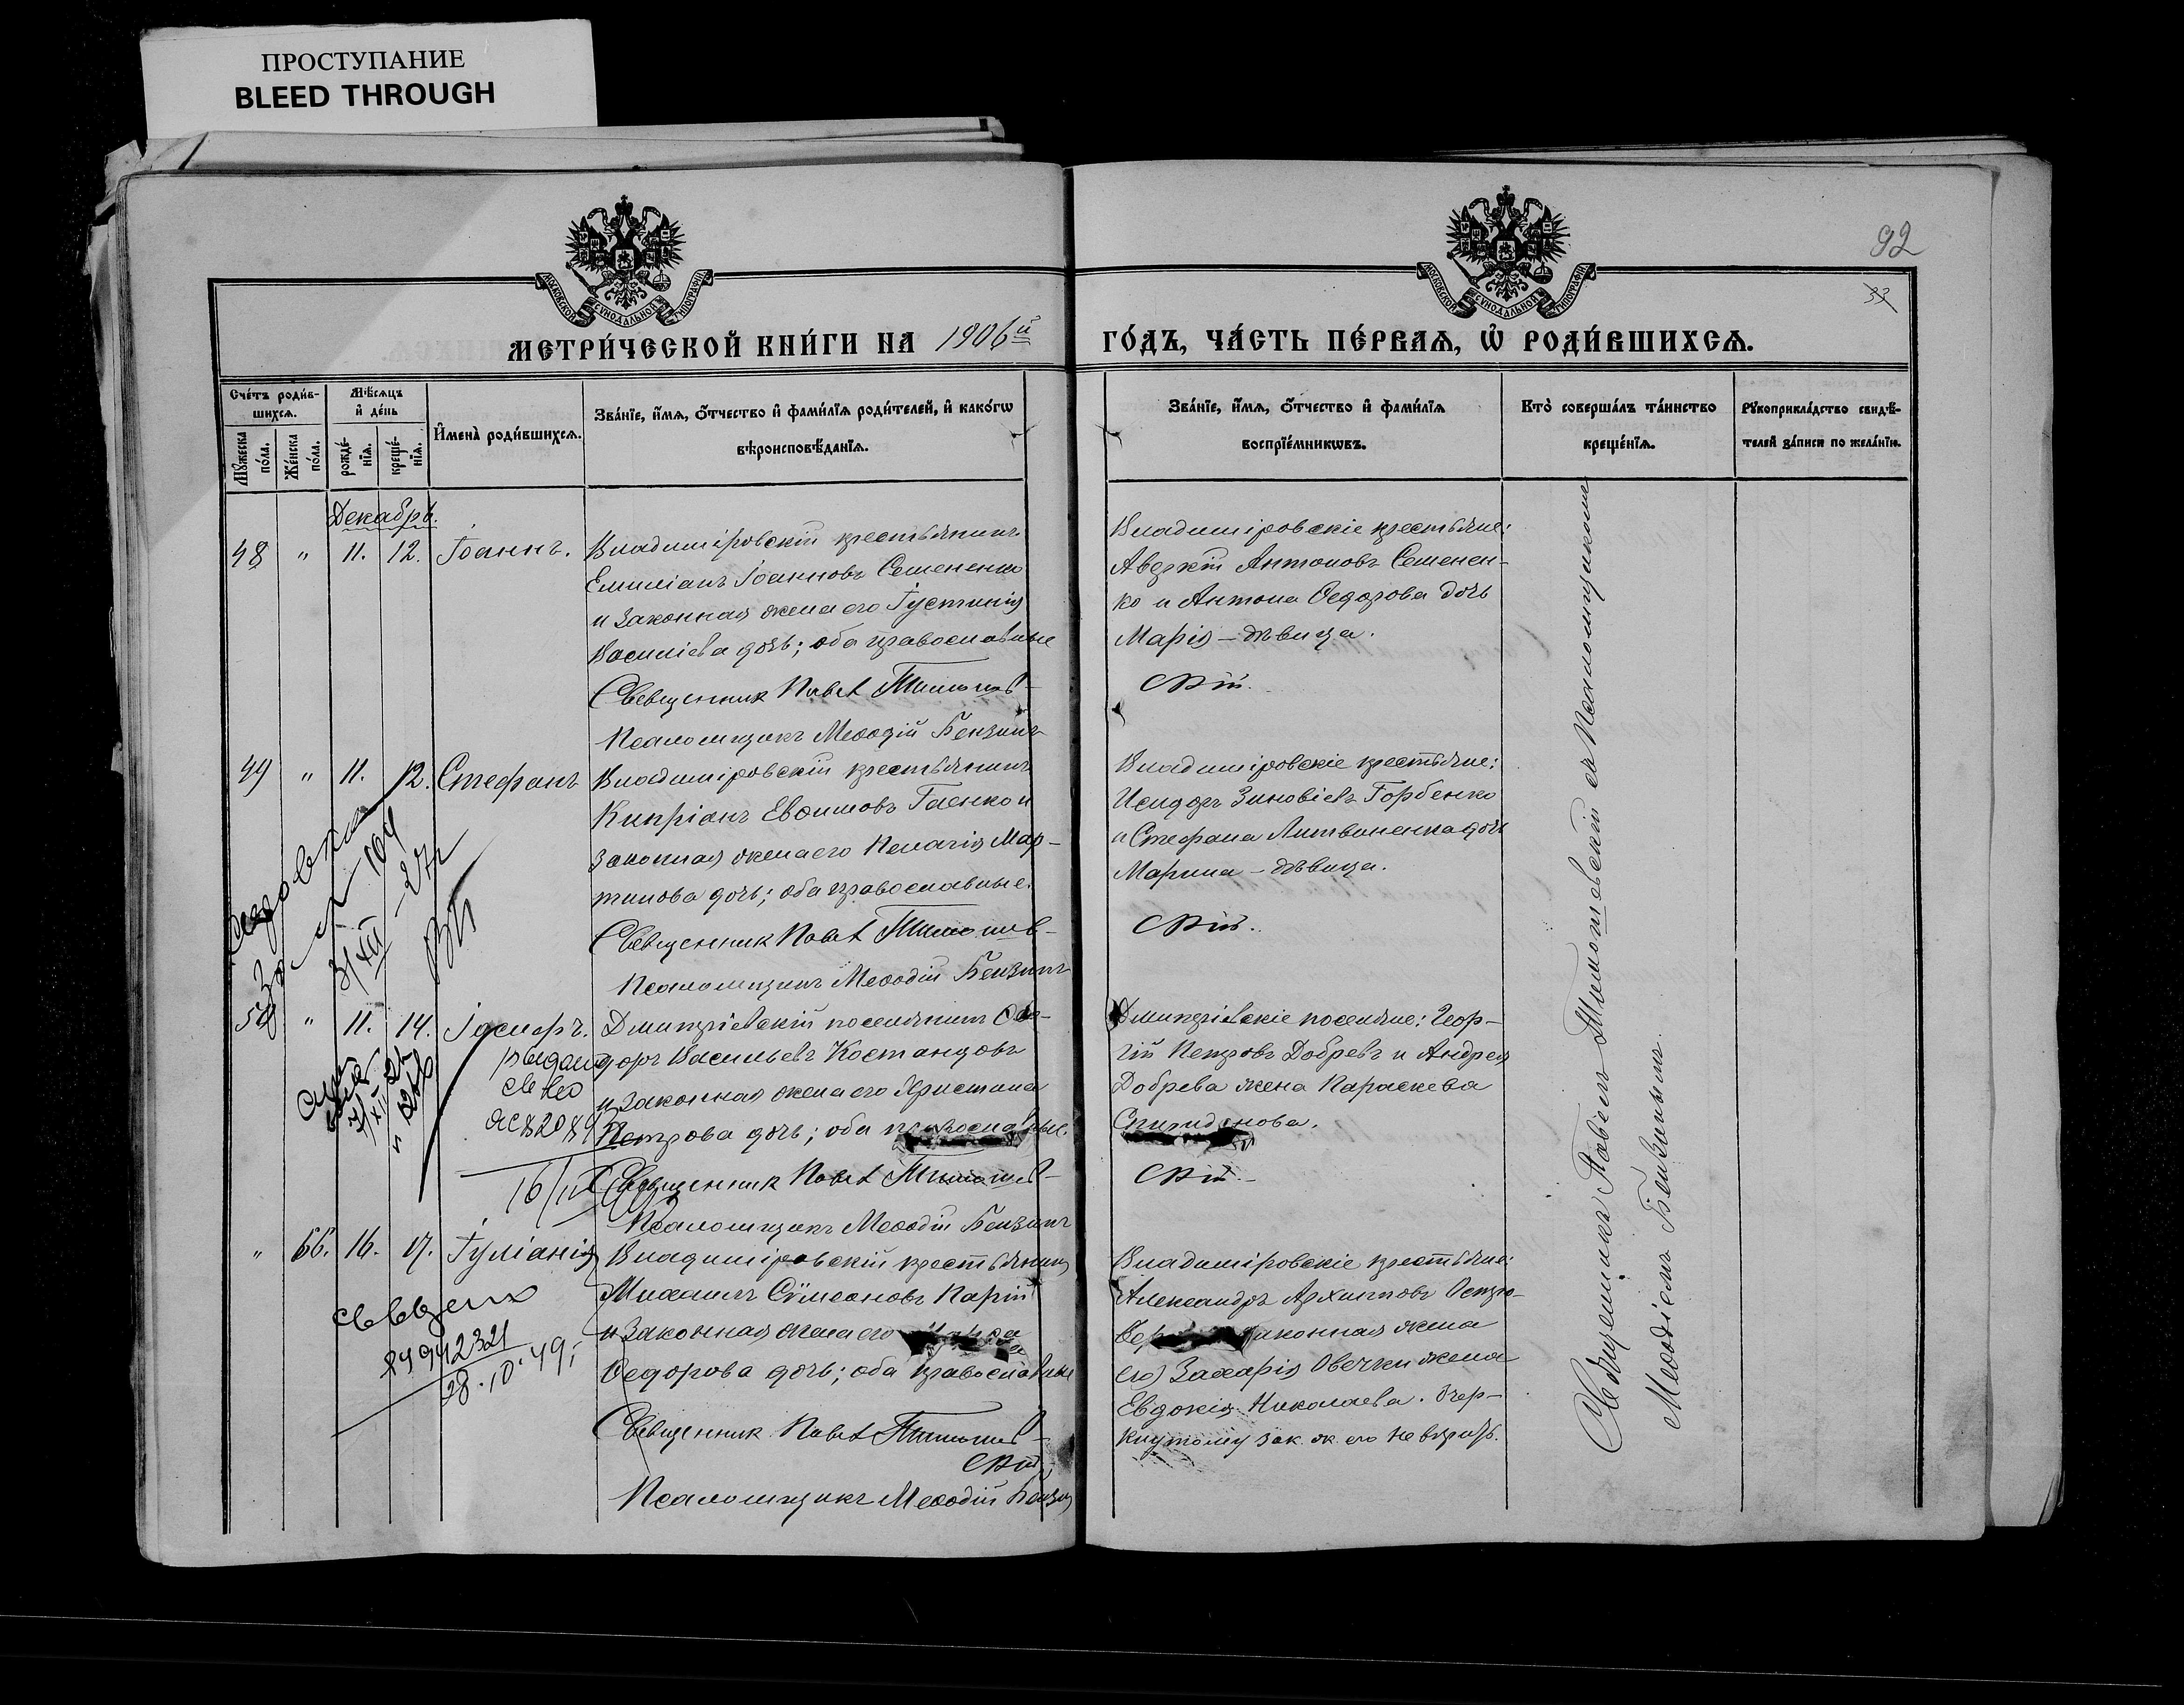 ПРОСТУПАНИЕ
BLEED THROUGH
92
33
МОСКОВСКОЙ СѴНОДАЛЬНОЙ ТИПОГРАФІИ
МОСКОВСКОЙ СѴНОДАЛЬНОЙ ТИПОГРАФІИ
МЕТРИ́ЧЕСКОЙ КНИ́ГИ НА 1906й ГО́ДЪ, ЧА́СТЬ ПЕ́РВАЯ, Ѽ РОДИ́ВШИХСЯ.
Сче́тъ роди́в-
шихся.
Мꙋ́жеска по́ла.
Же́нска по́ла.
Мѣ́сяцъ и҆ де́нь
рожде́-
нїя.
креще́-
нїя.
И҆мена̀ роди́вшихся.
Зва́нїе, и҆́мя, ѻ҆́тчество и҆ фами́лїя роди́телей, и҆ како́гѡ
вѣроисповѣ́данїя.
Зва́нїе, и҆́мя, ѻ҆́тчество и҆ фами́лїя
воспрїе́мникѡвъ.
Кто̀ соверша́лъ та́инство
креще́нїя.
Рꙋкоприкла́дство свидѣ́-
телей за́писи по жела́нїю.
Декабрь.
48 " 11. 12. Іоаннъ.
Владиміровскій крестьянинъ
Емиліанъ Іоанновъ Семененко
и законная жена его Іустинія
Василіева дочь; оба православные
Священник Павел
Псаломщикъ Меѳодій Бензинъ
Владиміровскіе крестьяне:
Аверкій Антоновъ Семенен-
ко и Антона Ѳедорова дочь
Марія – дѣвица.
49 " 11. 12. Стефанъ
Владиміровскій крестьянинъ
Кипріанъ Евѳимовъ Гаенко и
законная жена его Пелагія Мар-
тинова дочь; оба православные.
Священник Павел
Псаломщикъ Меѳодій Бензинъ
Владиміровскіе крестьяне:
Исидоръ Зиновіевъ Горбенко
и Стефана Литвиненка дочь
Марина – дѣвица.
104
3/XII – 27 г
50 " 11. 14. Іосифъ.
Дмитріевскій поселянинъ Ѳео-
доръ Васильевъ Костандовъ
и законная жена его Христина
Петрова дочь; оба православные.
Священник Павел
Псаломщикъ Меѳодій Бензинъ
Дмитріевскіе поселяне: Геор-
гій Петровъ Добревъ и Андрея
Добрева жена Параскева
Спиридонова.
выдано
св во
" 66. 16. 17. Іуліанія
Владиміровскій крестьянинъ
Михаилъ Сѵмеоновъ Парій
и законная жена его
Ѳедорова дочь; оба православные
Священник Павел
Псаломщикъ Меѳодій Бензинъ
Владиміровскіе крестьяне:
Александръ Архиповъ
законная жена
его) Захарія Овечки жена
Евдокія Николаева. Зчер-
кнутому зак. ж. его не вѣрить.
28.10.49 г
Священникъ Павелъ Тимошевскій съ Псаломщикомъ
Меѳодіемъ Бензинымъ.